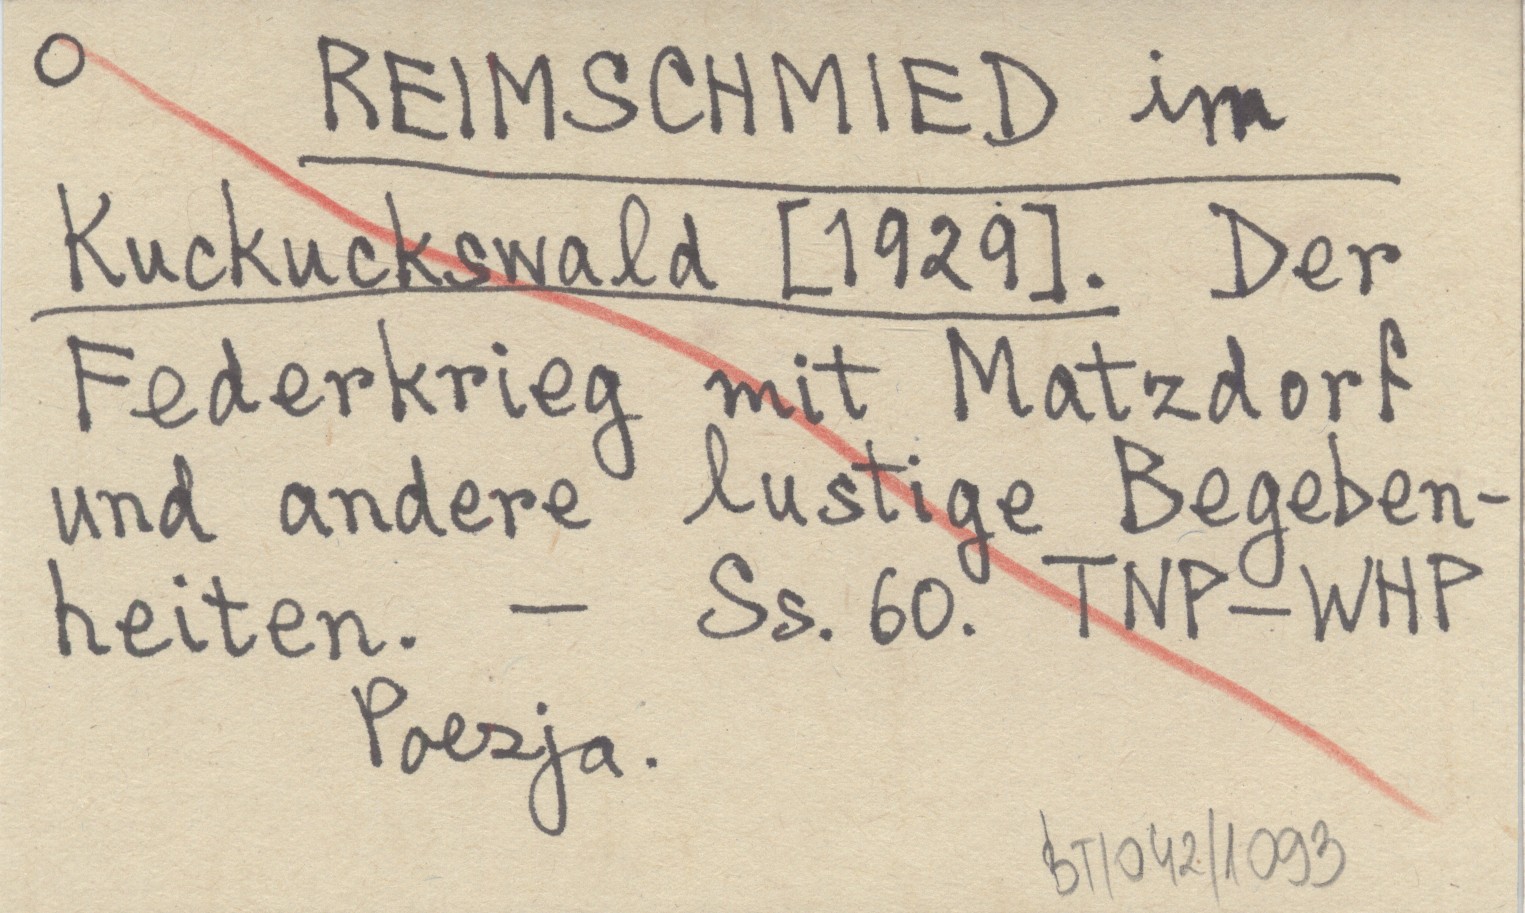 O REIMSCHMIED im
Kuckuckswald [1929]. Der
Federkrieg mit Matzdorf
und andere lustige Begeben-
heiten. — Ss. 60. TNP-WHP
Poezja.
bT/042/1093